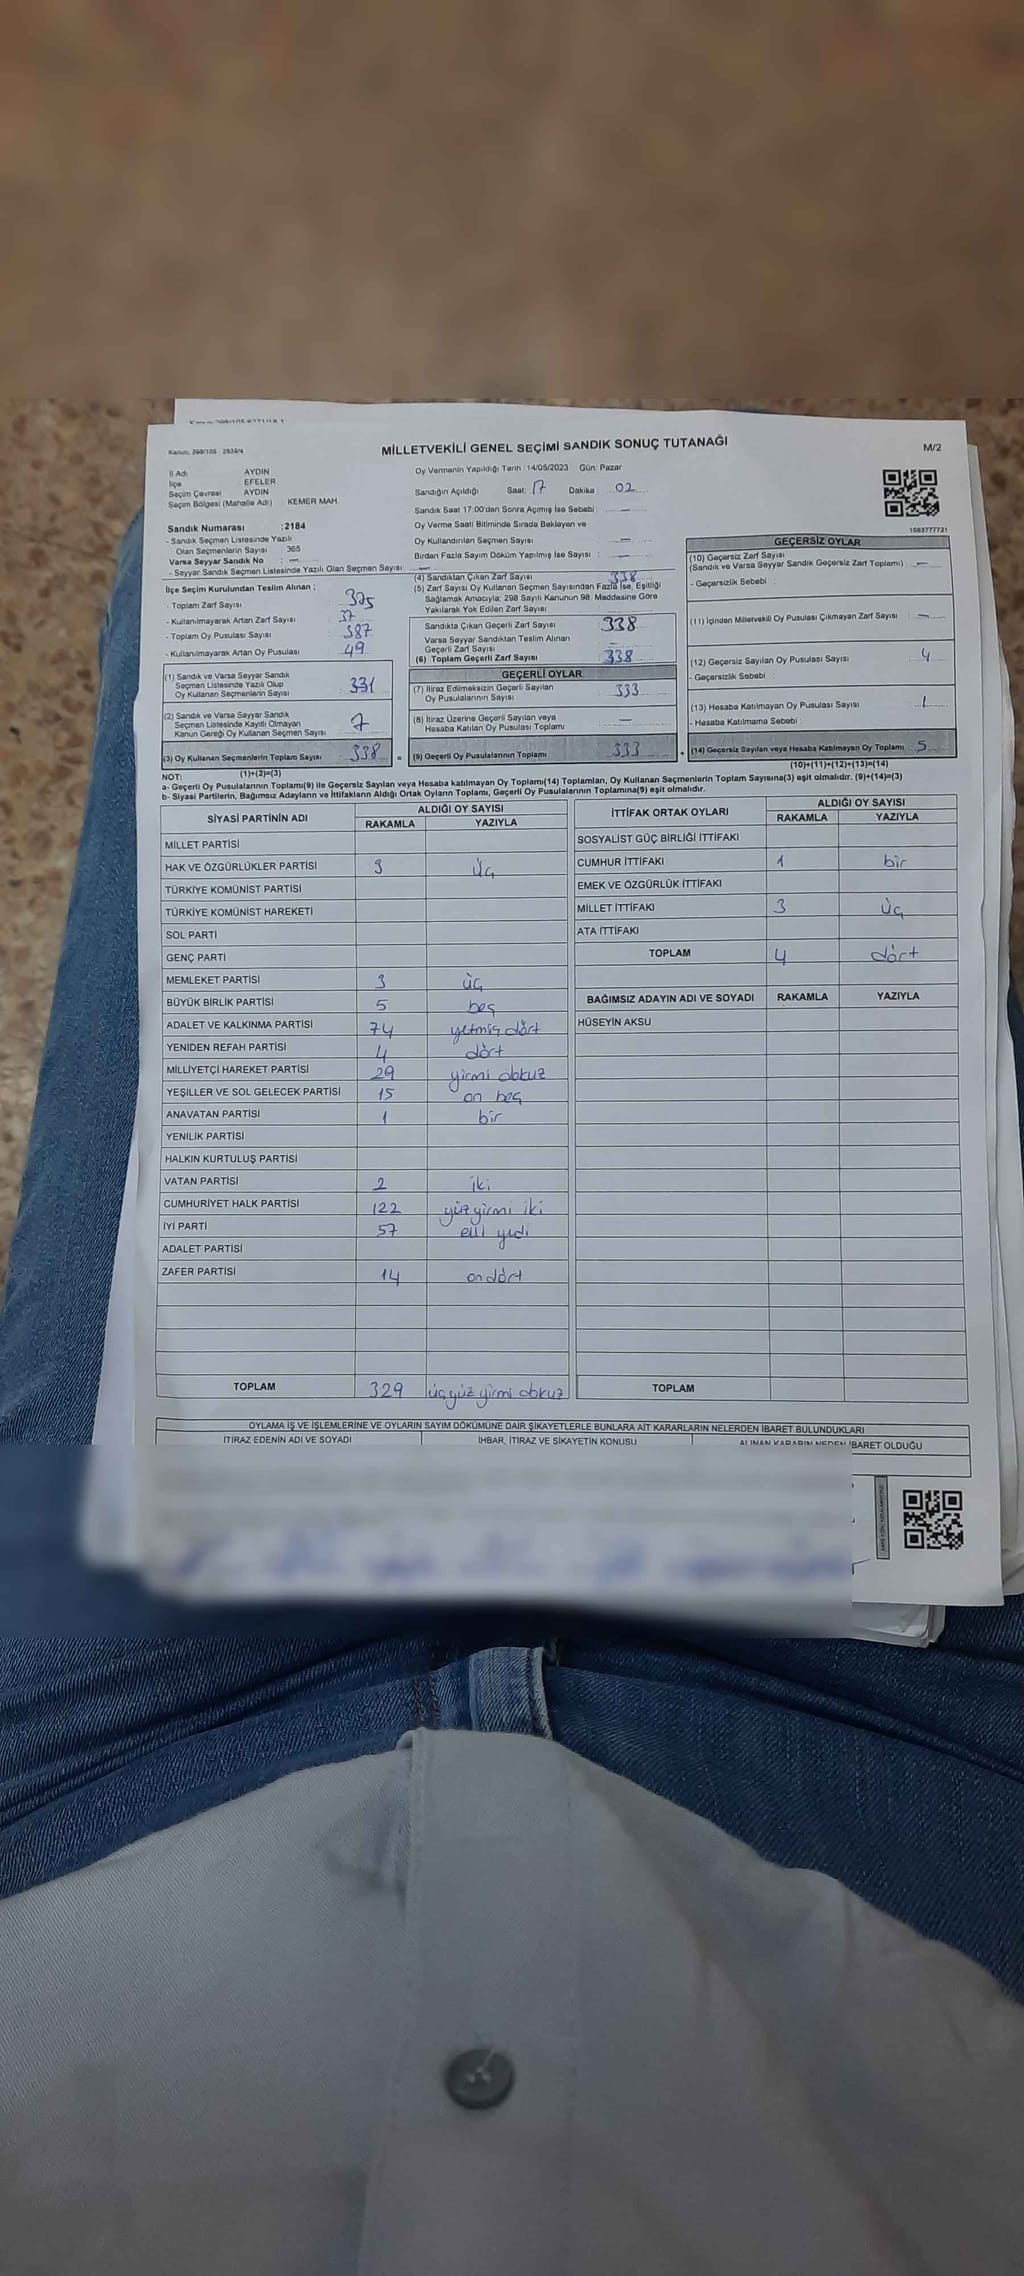 MİLLETVEKİLİ GENEL SEÇİMİ SANDIK SONUÇ TUTANAĞI
M/2
İl Adı AYDIN
İlçe EFELER
Seçim Çevresi AYDIN
Seçim Bölgesi (Mahalle Adı) KEMER MAH.
Sandık Numarası : 2184
- Sandık Seçmen Listesinde Yazılı
Olan Seçmenlerin Sayısı 365
Varsa Seyyar Sandık No : —
- Seyyar Sandık Seçmen Listesinde Yazılı Olan Seçmen Sayısı : —
Oy Vermenin Yapıldığı Tarih : 14/05/2023 Gün: Pazar
Sandığın Açıldığı Saat: 17 Dakika : 02
Sandık Saat 17:00'dan Sonra Açımış İse Sebebi : —
Oy Verme Saati Bitiminde Sırada Bekleyen ve
Oy Kullandırılan Seçmen Sayısı : —
Birdan Fazla Sayım Döküm Yapılmış İse Sayısı : —
1083777721
İlçe Seçim Kurulundan Teslim Alınan ;
- Toplam Zarf Sayısı : 375
- Kullanılmayarak Artan Zarf Sayısı : 37
- Toplam Oy Pusulası Sayısı : 387
- Kullanılmayarak Artan Oy Pusulası : 49
(1) Sandık ve Varsa Seyyar Sandık
Seçmen Listesinde Yazılı Olup
Oy Kullanan Seçmenlerin Sayısı : 331
(2) Sandık ve Varsa Seyyar Sandık
Seçmen Listesinde Kayıtlı Olmayan
Kanun Gereği Oy Kullanan Seçmen Sayısı : 7
(3) Oy Kullanan Seçmenlerin Toplam Sayısı : 338
(1)+(2)=(3)
(4) Sandıktan Çıkan Zarf Sayısı : 338
(5) Zarf Sayısı Oy Kullanan Seçmen Sayısından Fazla İse, Eşitliği
Sağlamak Amacıyla; 298 Sayılı Kanunun 98. Maddesine Göre
Yakılarak Yok Edilen Zarf Sayısı
Sandıkta Çıkan Geçerli Zarf Sayısı : 338
Varsa Seyyar Sandıktan Teslim Alınan
Geçerli Zarf Sayısı
(6) Toplam Geçerli Zarf Sayısı : 338
GEÇERLİ OYLAR
(7) İtiraz Edilmeksizin Geçerli Sayılan
Oy Pusulalarının Sayısı : 333
(8) İtiraz Üzerine Geçerli Sayılan veya
Hesaba Katılan Oy Pusulası Toplamı : —
= (9) Geçerli Oy Pusulalarının Toplamı : 333
GEÇERSİZ OYLAR
(10) Geçersiz Zarf Sayısı
(Sandık ve Varsa Seyyar Sandık Geçersiz Zarf Toplamı) : —
- Geçersizlik Sebebi :
(11) İçinden Milletvekili Oy Pusulası Çıkmayan Zarf Sayısı : —
(12) Geçersiz Sayılan Oy Pusulası Sayısı : 4
- Geçersizlik Sebebi :
(13) Hesaba Katılmayan Oy Pusulası Sayısı : 1
- Hesaba Katılmama Sebebi :
+ (14) Geçersiz Sayılan veya Hesaba Katılmayan Oy Toplamı : 5
(10)+(11)+(12)+(13)=(14)
NOT:
a- Geçerli Oy Pusulalarının Toplamı(9) ile Geçersiz Sayılan veya Hesaba katılmayan Oy Toplamı(14) Toplamları, Oy Kullanan Seçmenlerin Toplam Sayısına(3) eşit olmalıdır. (9)+(14)=(3)
b- Siyasi Partilerin, Bağımsız Adayların ve İttifakların Aldığı Ortak Oyların Toplamı, Geçerli Oy Pusulalarının Toplamına(9) eşit olmalıdır.
SİYASİ PARTİNİN ADI ALDIĞI OY SAYISI
RAKAMLA YAZIYLA
MİLLET PARTİSİ
HAK VE ÖZGÜRLÜKLER PARTİSİ 3 üç
TÜRKİYE KOMÜNİST PARTİSİ
TÜRKİYE KOMÜNİST HAREKETİ
SOL PARTİ
GENÇ PARTİ
MEMLEKET PARTİSİ 3 üç
BÜYÜK BİRLİK PARTİSİ 5 beş
ADALET VE KALKINMA PARTİSİ 74 yetmiş dört
YENİDEN REFAH PARTİSİ 4 dört
MİLLİYETÇİ HAREKET PARTİSİ 29 yirmi dokuz
YEŞİLLER VE SOL GELECEK PARTİSİ 15 on beş
ANAVATAN PARTİSİ 1 bir
YENİLİK PARTİSİ
HALKIN KURTULUŞ PARTİSİ
VATAN PARTİSİ 2 iki
CUMHURİYET HALK PARTİSİ 122 yüz yirmi iki
İYİ PARTİ 57 elli yedi
ADALET PARTİSİ
ZAFER PARTİSİ 14 on dört
TOPLAM 329 üç yüz yirmi dokuz
İTTİFAK ORTAK OYLARI ALDIĞI OY SAYISI
RAKAMLA YAZIYLA
SOSYALİST GÜÇ BİRLİĞİ İTTİFAKI
CUMHUR İTTİFAKI 1 bir
EMEK VE ÖZGÜRLÜK İTTİFAKI
MİLLET İTTİFAKI 3 üç
ATA İTTİFAKI
TOPLAM 4 dört
BAĞIMSIZ ADAYIN ADI VE SOYADI RAKAMLA YAZIYLA
HÜSEYİN AKSU
TOPLAM
OYLAMA İŞ VE İŞLEMLERİNE VE OYLARIN SAYIM DÖKÜMÜNE DAİR ŞİKAYETLERLE BUNLARA AİT KARARLARIN NELERDEN İBARET BULUNDUKLARI
İTİRAZ EDENİN ADI VE SOYADI İHBAR, İTİRAZ VE ŞİKAYETİN KONUSU ALINAN KARARIN NEDEN İBARET OLDUĞU